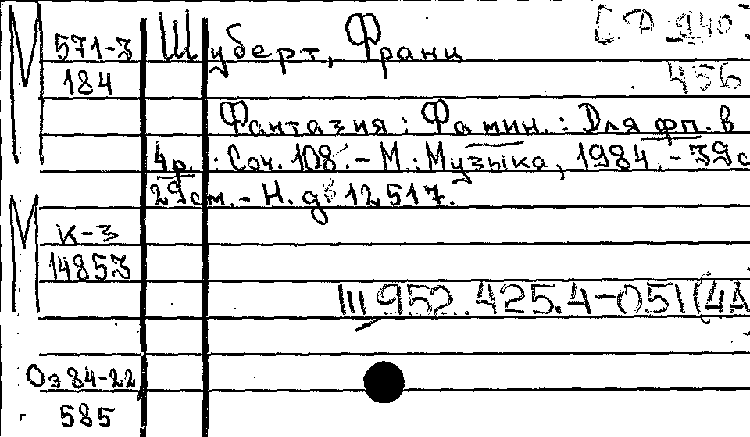 М 571-3
184
Шуберт, Франц
[D 940]
456
Фантазия : Фа мин. : Для фп. в
4 р. : Соч. 108. - М. : Музыка, 1984. - 39 с
29 см. - Н. д. 12517.
М К-3
14853
Ш 952.425.4-051(4А
Оз 84-22
585